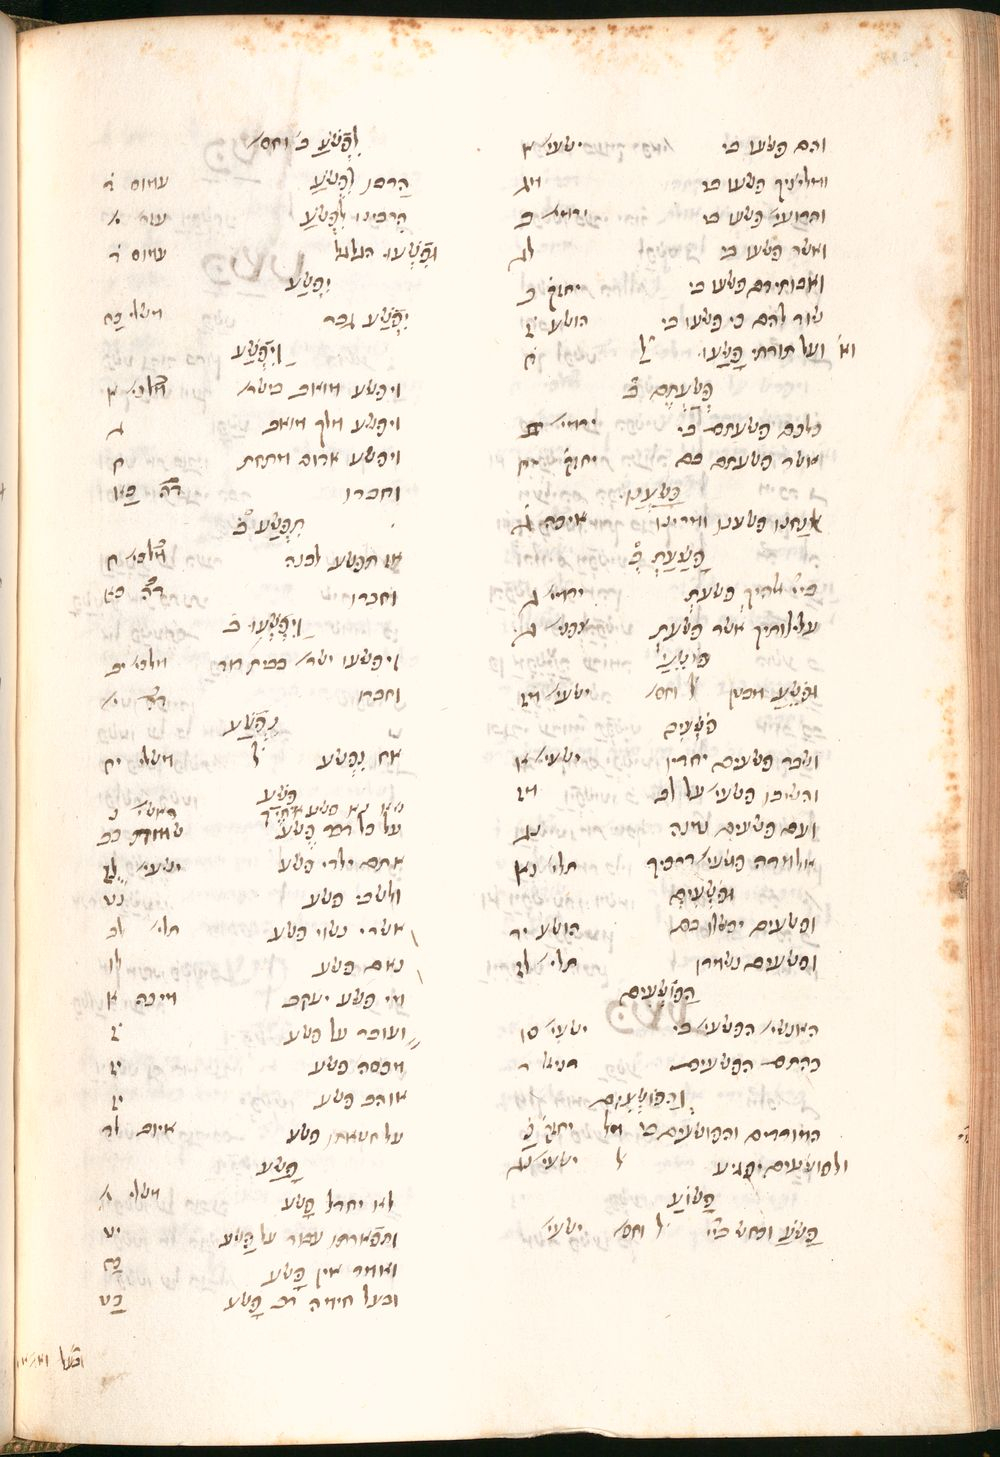 והם פשעו בי ישעי׳ א
ומליציך פשעו בי מג
והרועי׳ פשעו בי ירמי׳ ב
ואשר פשעו בי לג
ואבותיהם פשעו בי יחזק׳ ב
שוד להם כי פשעו בי הושע ז
ועל תורתי פשעו ח
פשעתם ב
כלכם פשעתם בי ירמי׳ ב
אשר פשעתם בם יחזק׳ יח
פשענו
אנחנו פשענו ומרינו איכה ג
פשעת ב
כי ביי׳ אלהיך פשעת ירמי׳ ג
עלילותיך אשר פשעת צפני׳ ג
ופשע
ופשע מבטן ל׳ וחס׳ ישעי׳ מח
פשעים
ושבר פשעים יחדיו ישעי׳ א
והשיבו פשעי׳ על לב מו
ועם פשעים נמנה נג
אלמדה פשעי׳ דרכיך תלי׳ נא
ופשעים
ופשעים יכשלו בם הושע יד
ופשעים נשמדו תלי׳ לז
הפושעים
האנשי׳ הפשעי׳ בי ישעי׳ סו
כהתם הפשעים דניאל ח
והפושעים
המורדים והפושעים בי יחזק׳ כ
ולפושעים יפגיע ל׳ ישעי׳ נג
פשוע
פשע וכחש ביי׳ ל׳ וחס׳ ישעי׳
לפשע ב׳ וחס׳
הרסן לפשע עמוס ד
הרבינו לפשע עזר׳ י
ופשעו הגלגל עמוס ד
יפשע
יפשע גבר משלי כח
ויפשע
ויפשע מואב בישר׳ מלכי׳ א
ויפשע מלך מואב ג
ויפשע אדום מתחת ח
וחברו דה׳ כא
תפשע ב
אז תפשע לבנה מלכי׳ ח
וחברו דה׳ כא
ויפשעו ב
ויפשעו ישר׳ בבית דוד מלכי׳ יב
וחברו דה׳ י
נפשע
אח נפשע ל׳ משלי יח
פשע
שא נא פשע אחיך בראשי׳ נ
על כל דבר פשע שמות כב
אתם ילדי פשע ישעי׳ נז
ולשבי פשע נט
אשרי נשוי פשע תלי׳ לב
נאם פשע לו
מי פשע יעקב מיכה א
ועובר על פשע ז
מכסה פשע יז
אוהב פשע יז
על חטאתו פשע איוב לד
פשע
לא יחדל פשע משלי י
ותפארתו עבור על פשע יט
ואומר אין פשע כח
ובעל חימה רב פשע כט